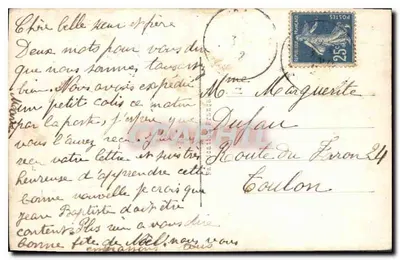 Chère belle sœur et frère
Deux mots pour vous dire
que nous sommes toujours
bien. Nous avons expédié
un petit colis ce matin
par la poste, j'espère que
vous l'aurez reçu. J'ai
reçu votre lettre et suis très
heureuse d'apprendre cette
bonne nouvelle je crois que
Jean Baptiste doit être
content. Plus rien à vous dire
bonne fête de Noël, nous vous
embrassons tous
Mme Marguerite
Dufau
Route du Faron 24
Toulon
POSTES
25c